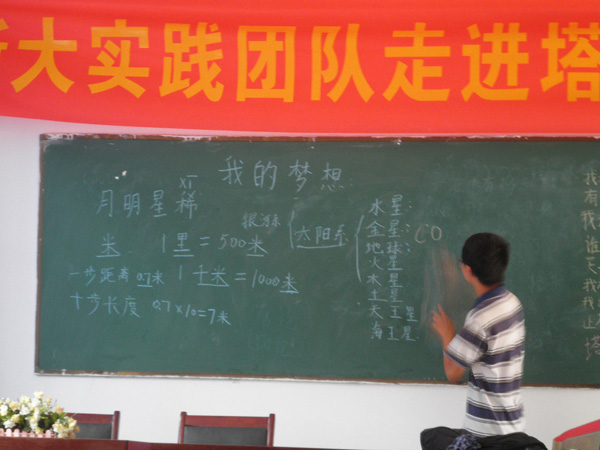 大实践团队走进塔
我的梦想
xī
月明星稀
米 1里=500米
一步距离 0.7米 1千米=1000米
十步长度 0.7×10=7米
银河系
太阳系
水星:
金星:
地球:
火星
木星
土星
天王星
海王星
CO
我
有
我
谁
我
塔